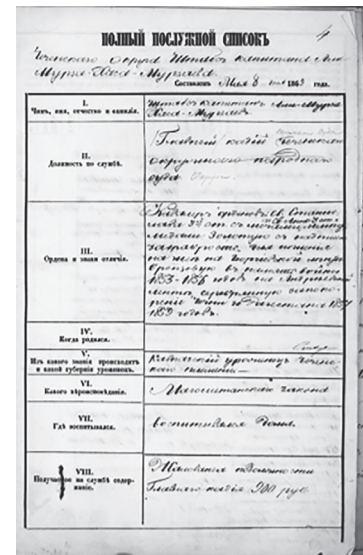 ПОЛНЫЙ ПОСЛУЖНОЙ СПИСОКЪ
Чеченскаго округа Штабсъ капитана
Составленъ Мая 8 дня 1863 года.
I.
Чинъ, имя, отчество и фамилія.
Штабсъ капитанъ
II.
Должность по службѣ.
Главный кадій Чеченскаго
окружнаго народнаго
суда
III.
Ордена и знаки отличія.
Св. Станис
лава 3й ст.
медали золотую съ надписью
за храбрость, для ношенія
на шеѣ на Георгіевской лентѣ
бронзовую въ память войны
1853-1856 годовъ на
лентѣ серебряную за поко-
реніе Чечни и Дагестана 1857
1859 годовъ.
IV.
Когда родился.
V.
Изъ какого званія происходитъ
и какой губерніи уроженецъ.
Кавказскій уроженецъ Чечен-
скаго племени
VI.
Какого вѣроисповѣданія.
Магометанскаго закона
VII.
Гдѣ воспитывался.
воспитывался Дома.
VIII.
Получаемое на службѣ содер-
жаніе.
Жалованья по должности
Главнаго кадія 900 руб.